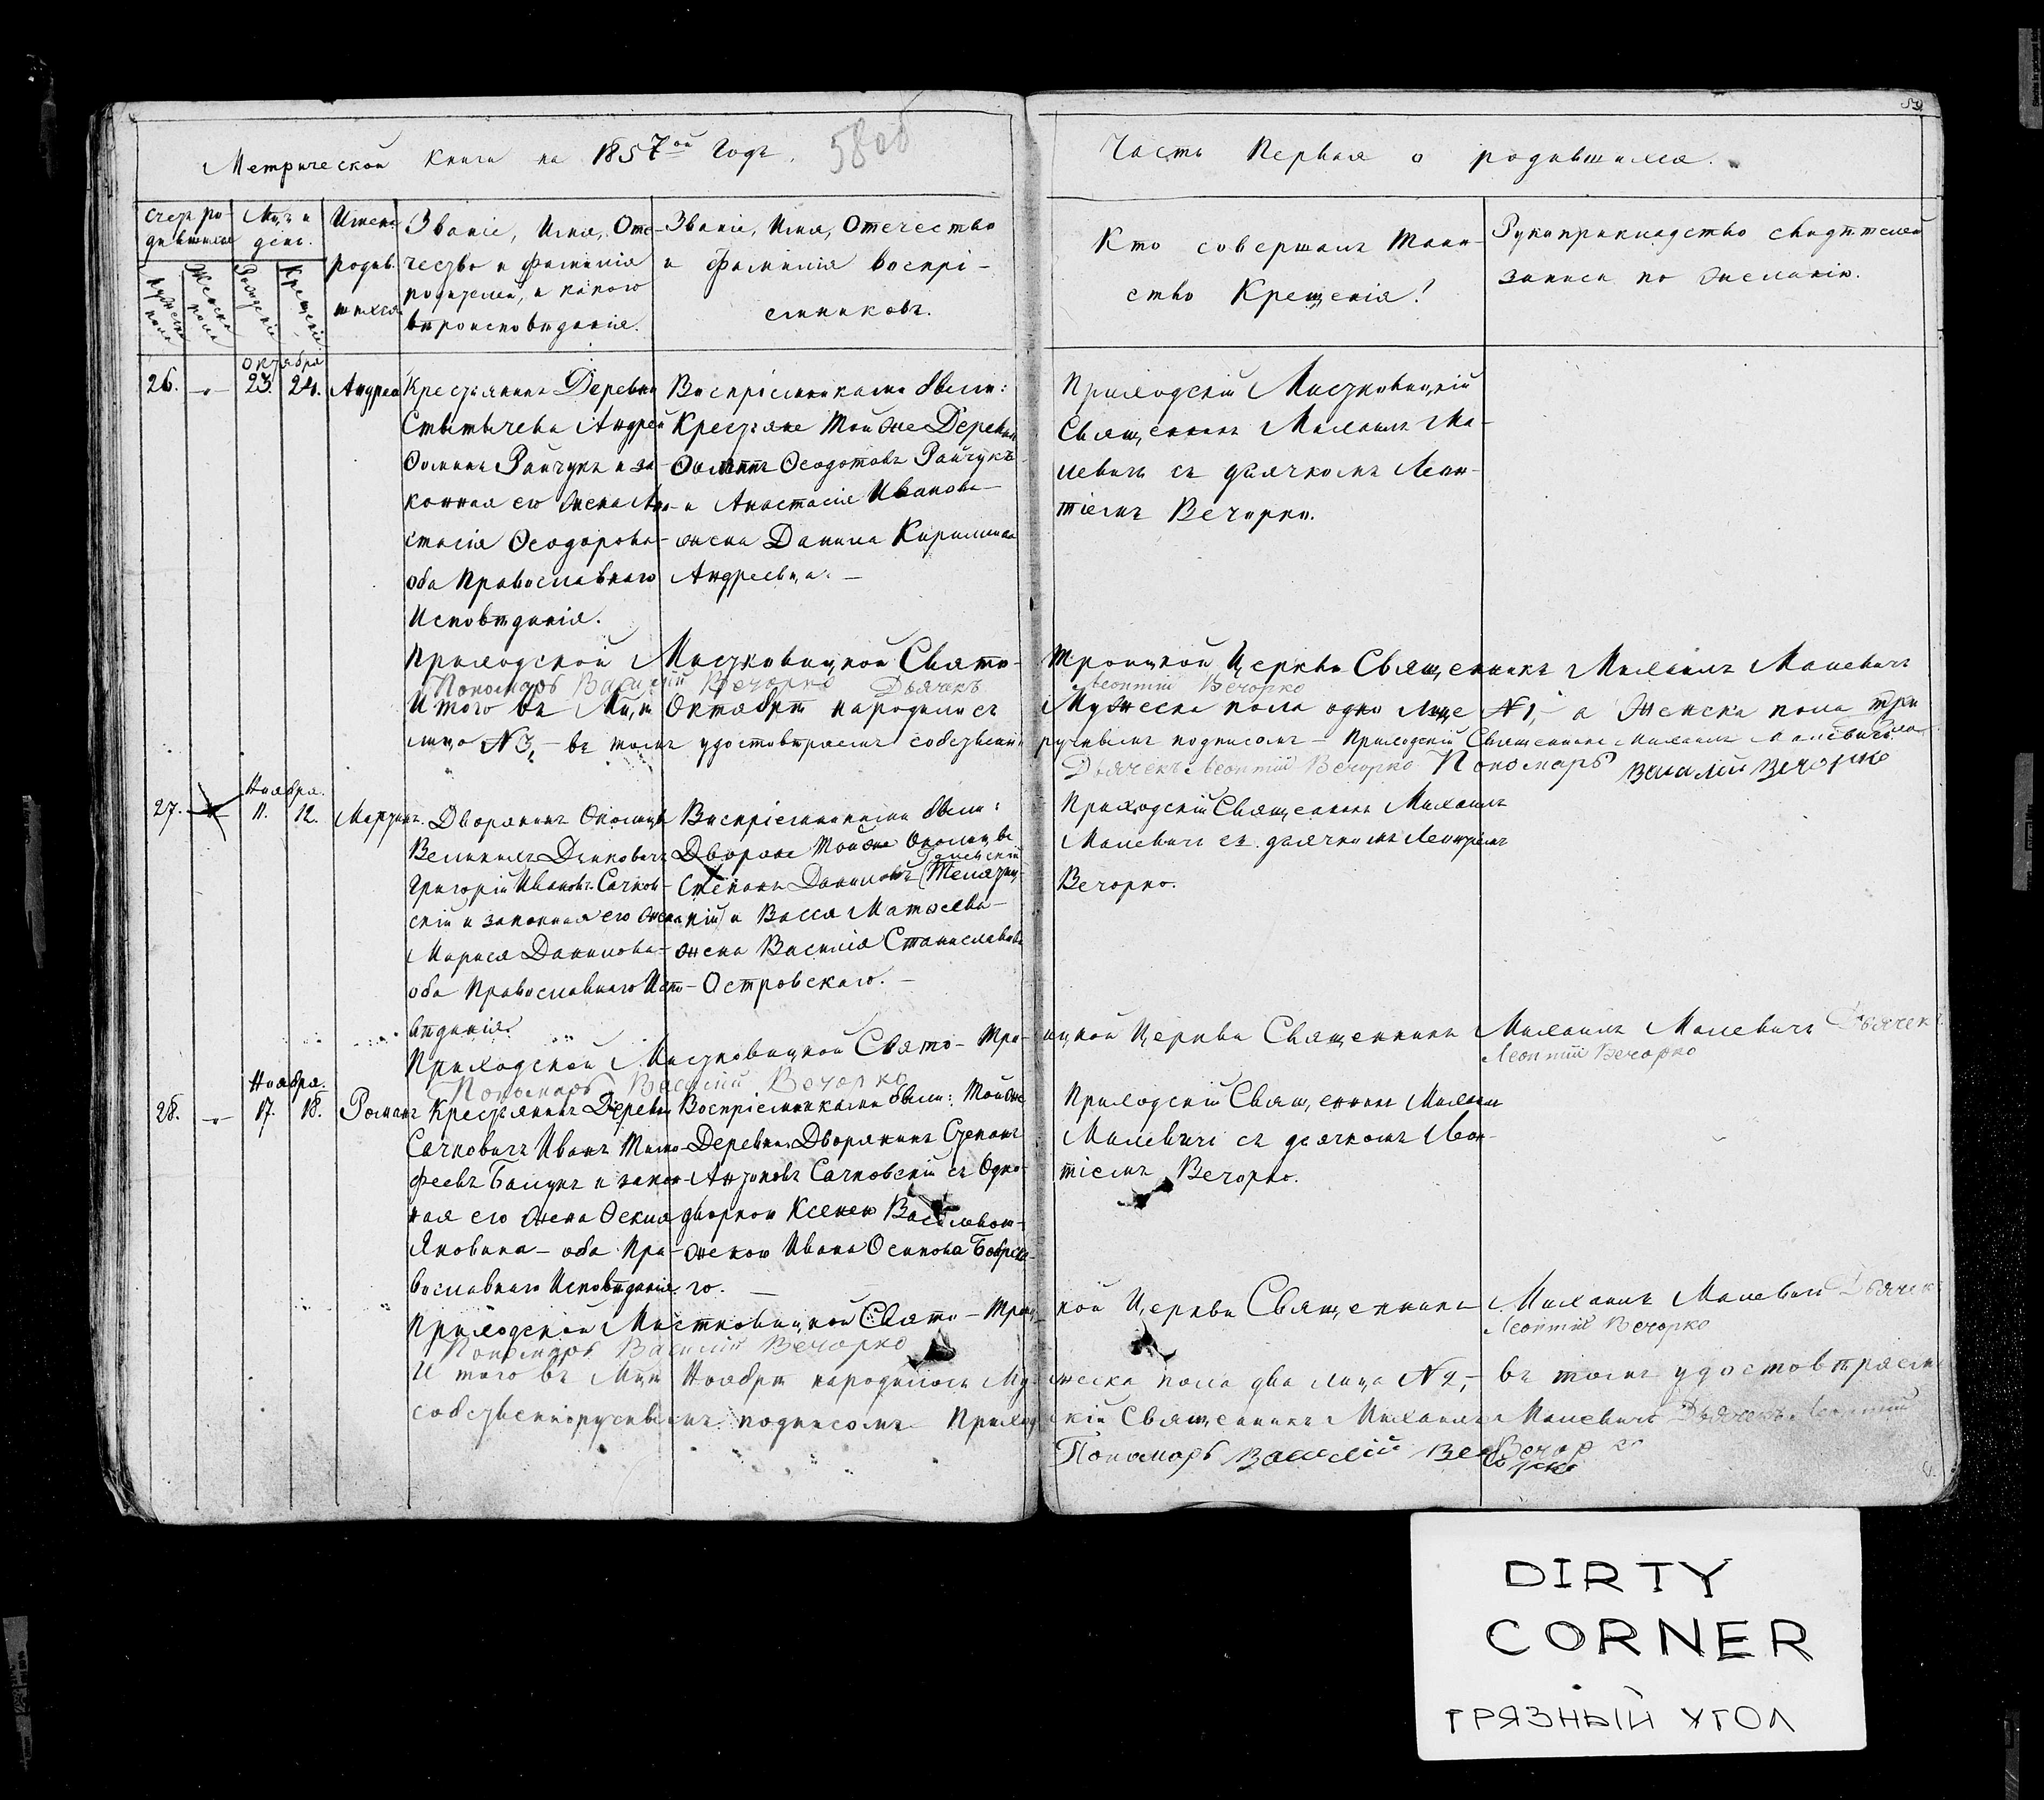 Метрической Книги на 1857ой Годъ. 58 об
Часть Первая о родившихся.
Счетъ ро-
дившихся
Мужеска пола
Женска пола
Мцъ и
день.
Рожденія
Крещенія
Имена
родив-
шихся
Званіе, Имя, Оте-
чество и Фамилія
родителей, и какого
вѣроисповѣданія.
Званіе, Имя, Отечество
и Фамилія воспрі-
емниковъ.
Кто совершалъ таин-
ство Крещенія!
Рукоприкладство свидѣтелей
записи по желанію.
Октября
26. 23. 24. Андрей
Крестьянинъ Деревни
Андрей
Ѳоминъ Райчукъ и за-
конная его жена Ана-
стасія Ѳеодорова-
оба Православнаго
Исповѣданія.
Воспріемниками были:
Крестьяне Той же Деревни
Ѳеодотовъ Райчукъ
и Анастасія Иванова-
жена Данила Кирилова
Андреевца.
Приходскій
Священникъ Михаилъ Ма-
левичъ съ дьячкомъ Леон-
тіемъ Вечорко.
Приходской Свято-
Троицкой Церкви Священникъ Михаилъ Малевичъ
Пономарь Василій Вечорко Дьячекъ
Леонтій Вечорко
Итого въ Мцѣ Октябрѣ народилось Мужеска пола одно лице №1, а Женска пола три
лица №3, въ томъ удостовѣряемъ собственноручнымъ подписомъ - Приходскій Священникъ Михаилъ Малевичъ
Дьячекъ Леонтій Вечорко Пономарь Василій Вечорко
Ноября.
27. 11. 12. Мартинъ.
Дворянинъ Околицы
Григорій Ивановъ Сачков-
скій и законная его жена
Марися Данилова-
оба Православнаго Испо-
вѣданія.
Воспріемниками были:
Дворяне Той же Околицы
Степанъ Даниловъ
и Васса Матѳеева-
жена Василія Станиславова
Островскаго.
Приходскій Священникъ Михаилъ
Малевичъ съ дьячкомъ Леонтіемъ
Вечорко.
Приходской Свято-Трои-
цкой Церкви Священникъ Михаилъ Малевичъ Дьячекъ
Леонтій Вечорко
Пономарь Василій Вечорко
Ноября.
28. 17. 18. Романъ
Крестьянинъ Деревни
Сачковичъ Иванъ Тимо-
феевъ и закон-
ная его жена Ѳекла
Яковина - оба Пра-
вославнаго Исповѣданія.
Воспріемниками были: Той же
Деревни Дворянинъ Степанъ
Антоновъ Сачковскій съ Одно-
дворкою Ксенею
женою Ивана Осипова
го.
Приходскій Священникъ Михаилъ
Малевичъ съ дьячкомъ Леон-
тіемъ Вечорко.
Приходской Свято-Троиц-
кой Церкви Священникъ Михаилъ Малевичъ Дьячекъ
Леонтій Вечорко
Пономарь Василій Вечорко
Итого въ Мцѣ Ноябрѣ народилось Мужеска пола два лица №2, въ томъ удостовѣряемъ
собственноручнымъ подписомъ Приходскій Священникъ Михаилъ Малевичъ Дьячекъ Леонтій
Вечорко
Пономарь Василій Вечорко
DIRTY
CORNER
ГРЯЗНЫЙ УГОЛ